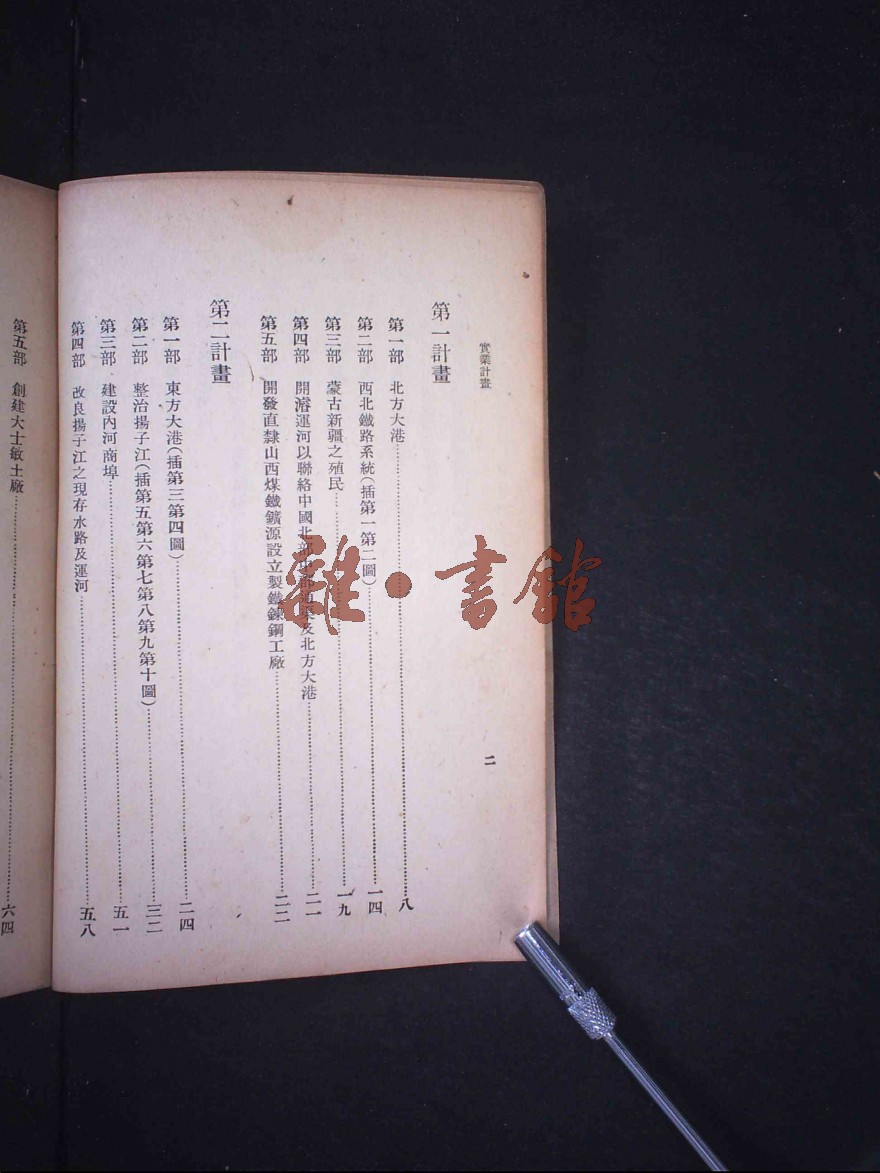 實業計畫
二
第一計畫
第一部 北方大港……八
第二部 西北鐵路系統(插第一第二圖)……一四
第三部 蒙古新疆之殖民……一九
第四部 開濬運河以聯絡中國北部中部通渠及北方大港……二一
第五部 開發直隸山西煤鐵鑛源設立製鐵鍊鋼工廠……二二
第二計畫
第一部 東方大港(插第三第四圖)……二四
第二部 整治揚子江(插第五第六第七第八第九第十圖)……三二
第三部 建設內河商埠……五一
第四部 改良揚子江之現存水路及運河……五八
第五部 創建大士敏土廠……六四
雜·書館